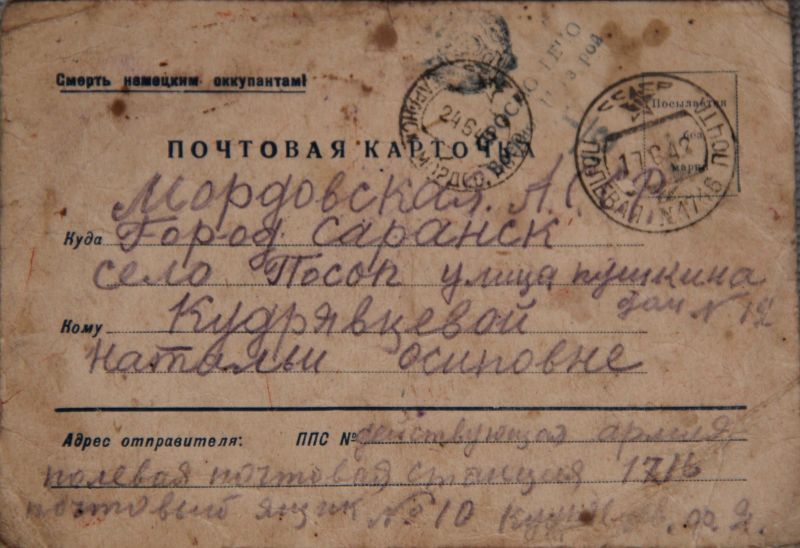 Смерть немецким оккупантам!
ПРОСМОТРЕНО
Посылается
без
марки
24 6
17 6 42
ПОЛЕВАЯ N 1716
ПОЧТОВАЯ КАРТОЧКА
Мордовская. А.ССР.
Куда Город Саранск
село Посоп улица пушкина
дом N 12
Кому Кудрявцевой
Натальи Осиповне
Адрес отправителя: ППС № действующая армия
полевая почтовая станция 1716
почтовый ящик № 10